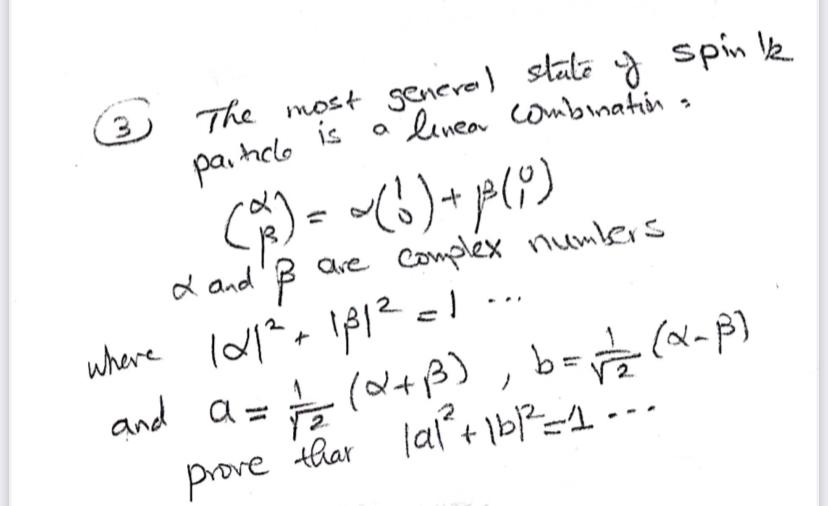 ③ The most general state of spin 1/2
particle is a linear combination :
(α β) = α(1 0) + β(0 1)
α and β are complex numbers
where |α|² + |β|² = 1 ...
and a = 1/√2 (α+β) , b = 1/√2 (α-β)
prove that |a|² + |b|² = 1 ...